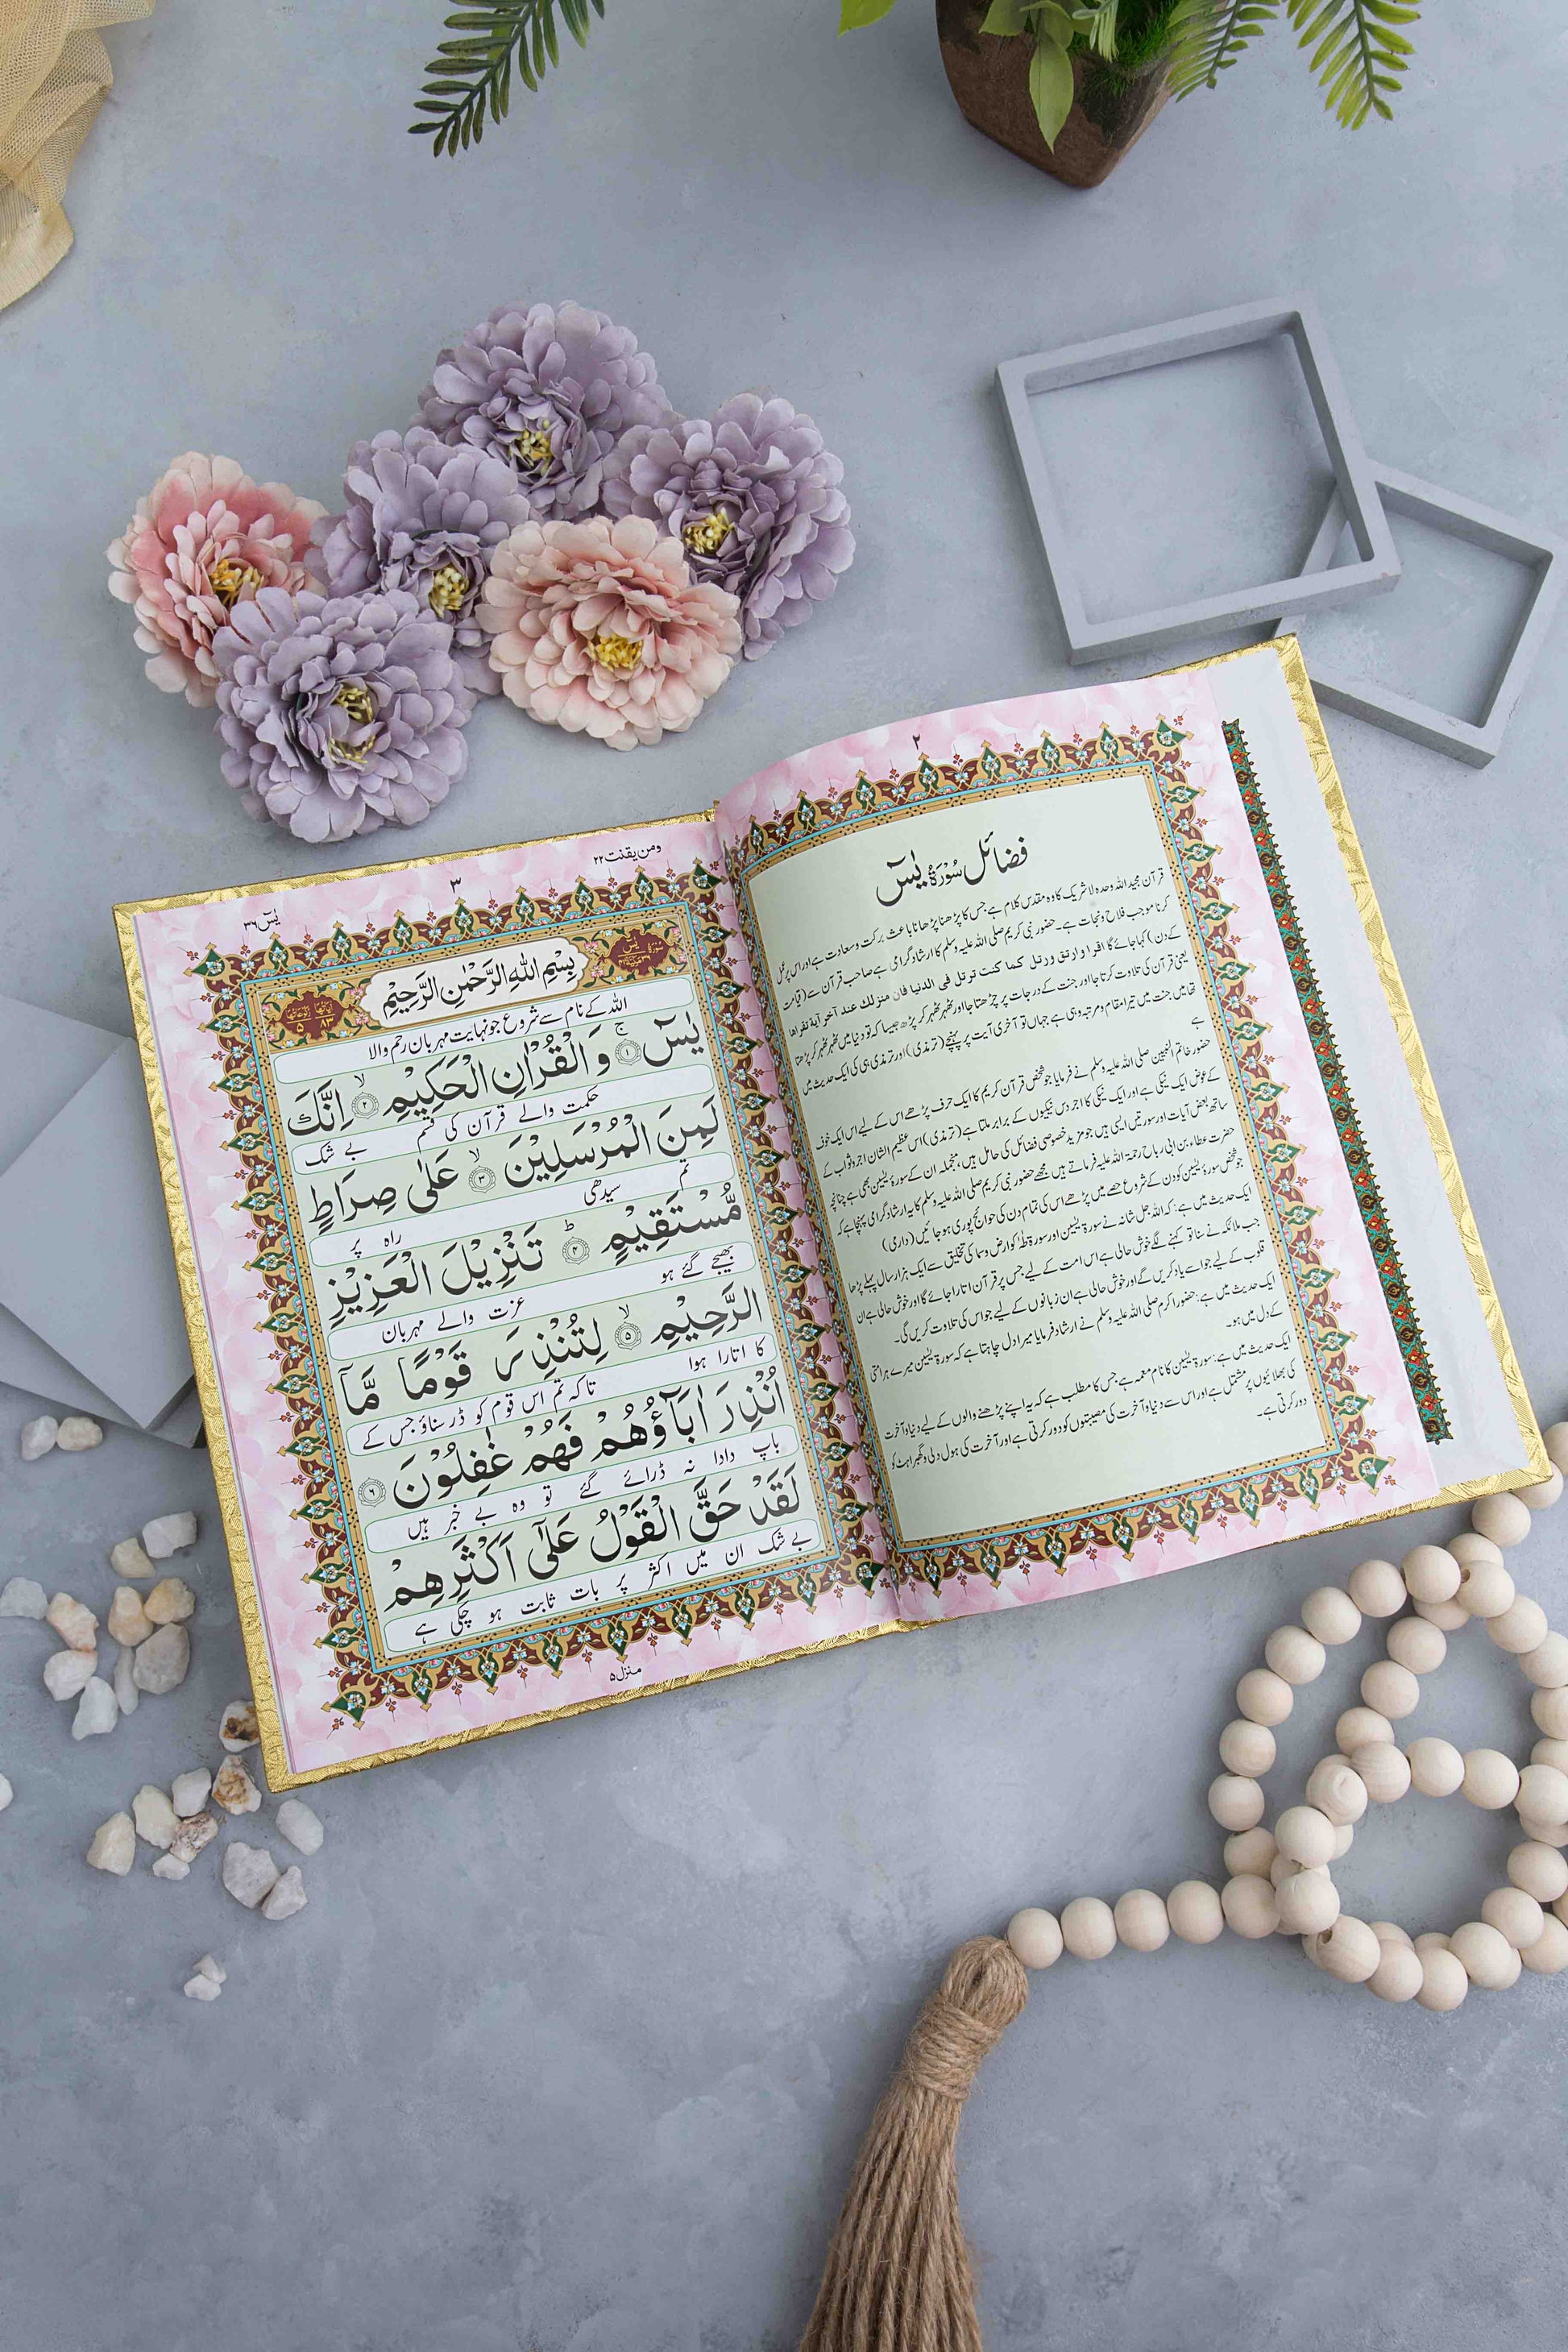 ۲
فضائل سُوْرَۃُ یٰسٓ
قرآن مجید اللہ وحدہ لا شریک کا وہ مقدس کلام ہے جس کا پڑھنا پڑھانا باعث برکت و سعادت ہے اور اس پر عمل
کرنا موجب فلاح و نجات ہے۔ حضور نبی کریم صلی اللہ علیہ وسلم کا ارشاد گرامی ہے صاحب قرآن سے (قیامت
کے دن) کہا جائے گا اقرا و ارتق ورتل کما کنت ترتل فی الدنیا فان منزلك عند آخر آیة تقراها
یعنی قرآن کی تلاوت کرتا جا اور جنت کے درجات پر چڑھتا جا اور ٹھہر ٹھہر کر پڑھ جیسا کہ تو دنیا میں ٹھہر ٹھہر کر پڑھتا
تھا پس جنت میں تیرا مقام و مرتبہ وہی ہے جہاں تو آخری آیت پر پہنچے (ترمذی) اور ترمذی ہی کی ایک حدیث میں
ہے
حضور خاتم النبیین صلی اللہ علیہ وسلم نے فرمایا جو شخص قرآن کریم کا ایک حرف پڑھے اس کے لیے اس ایک حرف
کے عوض ایک نیکی ہے اور ایک نیکی کا اجر دس نیکیوں کے برابر ملتا ہے (ترمذی) اس عظیم الشان اجر و ثواب کے
ساتھ بعض آیات اور سورتیں ایسی ہیں جو مزید خصوصی فضائل کی حامل ہیں، منجملہ ان کے سورۃ یٰسین بھی ہے چنانچہ
حضرت عطاء بن ابی رباح رحمۃ اللہ علیہ فرماتے ہیں مجھے حضور نبی کریم صلی اللہ علیہ وسلم کا یہ ارشاد گرامی پہنچا ہے کہ
جو شخص سورۃ یٰسین کو دن کے شروع حصے میں پڑھے اس کی تمام دن کی حوائج پوری ہو جائیں (دارمی)
ایک حدیث میں ہے: کہ اللہ جل شانہ نے سورۃ یٰسین اور سورۃ طٰہٰ کو ارض و سما کی تخلیق سے ایک ہزار سال پہلے پڑھا
جب ملائکہ نے سنا تو کہنے لگے خوش حالی ہے اس امت کے لیے جس پر قرآن اتارا جائے گا اور خوش حالی ہے ان
قلوب کے لیے جو اسے یاد کریں گے اور خوش حالی ہے ان زبانوں کے لیے جو اس کی تلاوت کریں گی۔
ایک حدیث میں ہے: حضور اکرم صلی اللہ علیہ وسلم نے ارشاد فرمایا میرا دل چاہتا ہے کہ سورۃ یٰسین میرے ہر امتی
کے دل میں ہو۔
ایک حدیث میں ہے: سورۃ یٰسین کا نام معمہ ہے جس کا مطلب ہے کہ یہ اپنے پڑھنے والوں کے لیے دنیا و آخرت
کی بھلائیوں پر مشتمل ہے اور اس سے دنیا و آخرت کی مصیبتوں کو دور کرتی ہے اور آخرت کی ہول دلی و گھبراہٹ کو
دور کرتی ہے۔
ومن یقنت ۲۲
۳
یٰسٓ ۳۶
سُوْرَۃُ یٰسٓ
بِسْمِ اللهِ الرَّحْمٰنِ الرَّحِيْمِ
اللہ کے نام سے شروع جو نہایت مہربان رحم والا
يٰسٓ ۚ﴿۱﴾ وَ الْقُرْاٰنِ الْحَكِيْمِ ۙ﴿۲﴾ اِنَّكَ
حکمت والے قرآن کی قسم بے شک
لَمِنَ الْمُرْسَلِيْنَ ۙ﴿۳﴾ عَلٰى صِرَاطٍ
تم سیدھی
مُّسْتَقِيْمٍ ؕ﴿۴﴾ تَنْزِيْلَ الْعَزِيْزِ
راہ پر بھیجے گئے ہو عزت والے مہربان
الرَّحِيْمِ ۙ﴿۵﴾ لِتُنْذِرَ قَوْمًا مَّآ
کا اتارا ہوا تاکہ تم اس قوم کو ڈر سناؤ جس کے
اُنْذِرَ اٰبَآؤُهُمْ فَهُمْ غٰفِلُوْنَ ﴿۶﴾
باپ دادا نہ ڈرائے گئے تو وہ بے خبر ہیں
لَقَدْ حَقَّ الْقَوْلُ عَلٰٓى اَكْثَرِهِمْ
بے شک ان میں اکثر پر بات ثابت ہو چکی ہے
منزل ۵